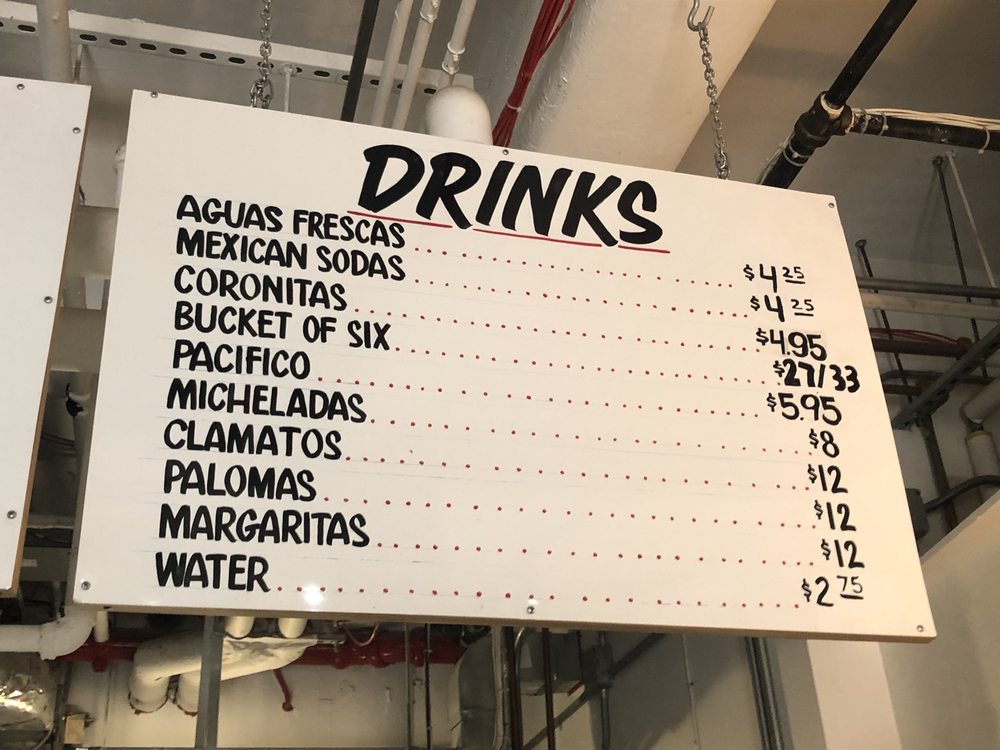 DRINKS
AGUAS FRESCAS $4 25
MEXICAN SODAS $4 25
CORONITAS $4.95
BUCKET OF SIX $27/33
PACIFICO $5.95
MICHELADAS $8
CLAMATOS $12
PALOMAS $12
MARGARITAS $12
WATER $2 75